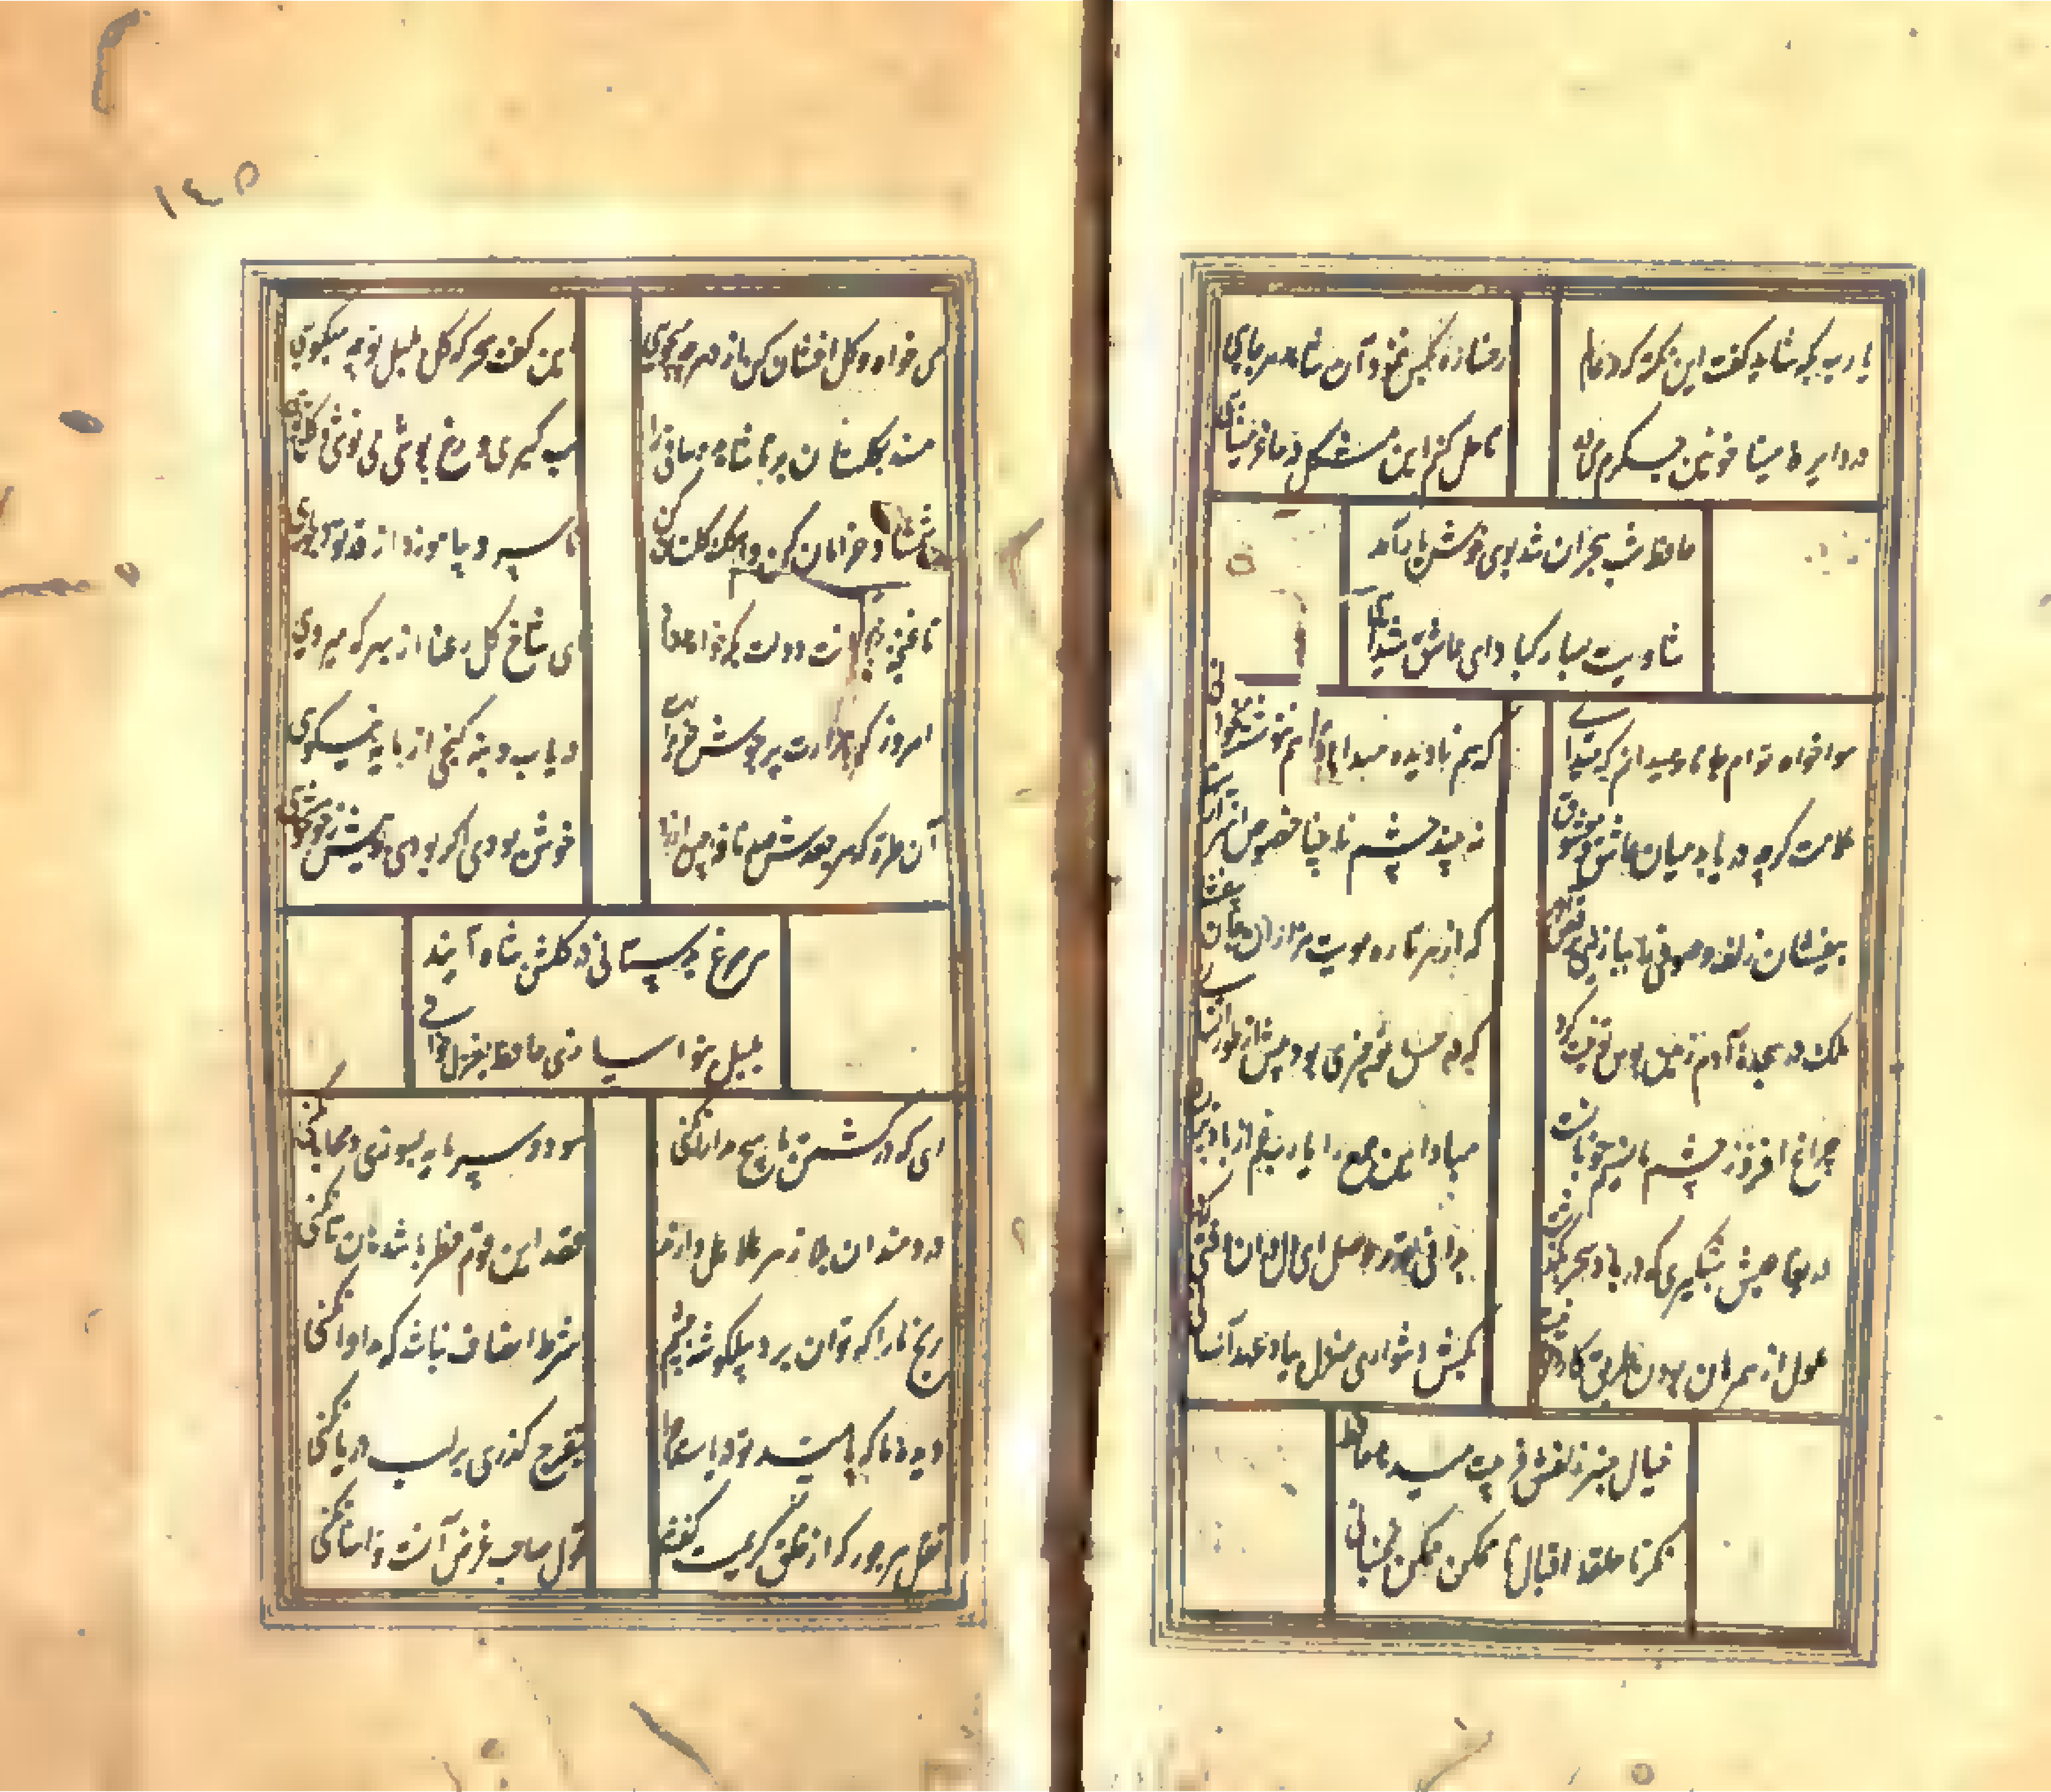 یارب بکه شاید گفت این نکته که در عالم
رخساره بکس ننمود آن شاهد هرجایی
در دایره مینا خونین جگرم می ده
تا حل کنم این مشکل در ساغر مینایی
حافظ شب هجران شد بوی خوش یار آمد
شادیت مبارک باد ای عاشق شیدایی
هواخواه توام جانا و میدانم که میدانی
که هم نادیده میدانی و هم ننوشته میخوانی
ملامت گر چه دریابد میان عاشق و معشوق
نه بیند چشم نابینا خصوص اسرار پنهانی
بیفشان زلف و صوفی را ببازی و برقص آور
که از هر تاره مویت هزاران
ملک در سجده آدم زمین بوس تو نیت کرد
که در حسن تو چیزی یافت بیش از طور انسانی
چراغ افروز چشم ما نسیم خوبانست
مبادا این جمع را یارب غم از باد پریشانی
دریغا عیش شبگیری که در باد سحر بگذشت
ندانی قدر وصل ای دل
ملول از همرهان بودن طریق کاردانی نیست
بکش دشواری منزل بیاد عهد آسانی
خیال چنبر زلفش فریبت میدهد حافظ
نگر تا حلقه اقبال ناممکن نجنبانی
۱٤٥
می خواه و گل افشان کن از دهر چه میجویی
این گفت سحرگه گل بلبل تو چه میگویی
مسند بگلستان بر تا شاهد و ساقی را
لب گیری و رخ بوسی می نوشی و گل بویی
شمشاد خرامان کن و آهنگ گلستان کن
تا سرو بیاموزد از قد تو دلجویی
تا غنچه خندانت دولت بکه خواهد داد
ای شاخ گل رعنا از بهر که میرویی
امروز که بازارت پر جوش خریدارست
دریاب و بنه گنجی از مایه نیکویی
آن طره که هر جعدش صد نافه چین ارزد
خوش بودی اگر بودی بوییش ز خوشخویی
هر مرغ بدستانی در گلشن شاه آیند
بلبل بنواسازی حافظ بغزل گویی
ای که در کشتن ما هیچ مدارا نکنی
سود و سرمایه بسوزی و محابا نکنی
دردمندان بلا زهر هلاهل دارند
قصد این قوم خطر باشد هان تا نکنی
رنج ما را که توان برد بیک گوشه چشم
شرط انصاف نباشد که مداوا نکنی
دیده ما که بامید تو دریاست چرا
بتفرج گذری بر لب دریا نکنی
نقل هر جور که از خلق کریمت گفتند
قول صاحب غرض آنست تو اینها نکنی